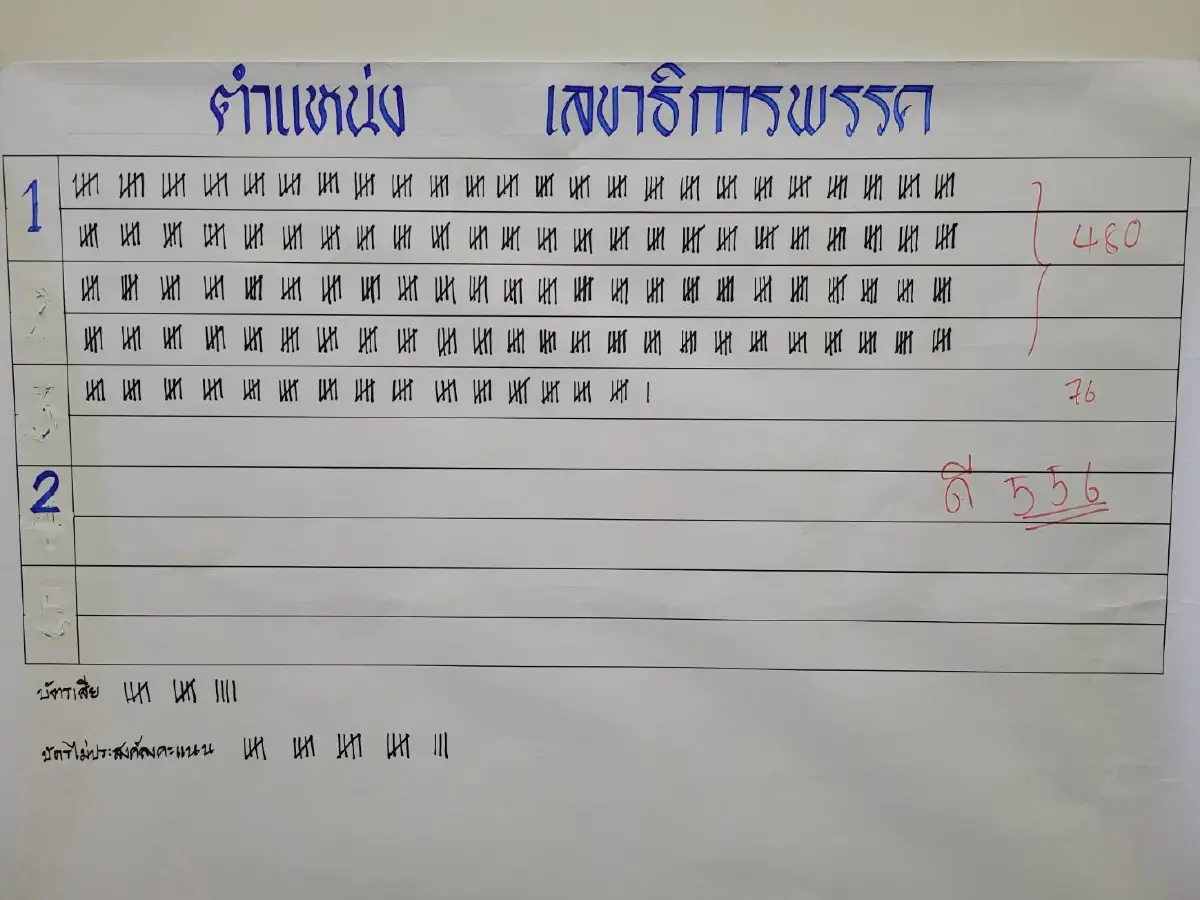 ตำแหน่ง เลขาธิการพรรค
1
480
76
2
ดี 556
บัตรเสีย
บัตรไม่ประสงค์ลงคะแนน